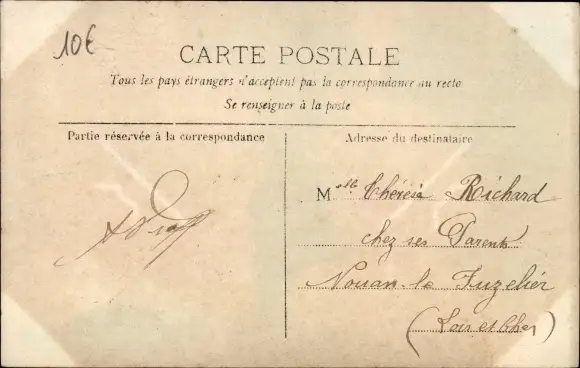 10€
CARTE POSTALE
Tous les pays étrangers n'acceptent pas la correspondance au recto
Se renseigner à la poste
Partie réservée à la correspondance
Adresse du destinataire
Mlle Thérèse Richard
chez ses Parents
Nouan-le Fuzeliér
(Loir et Cher)